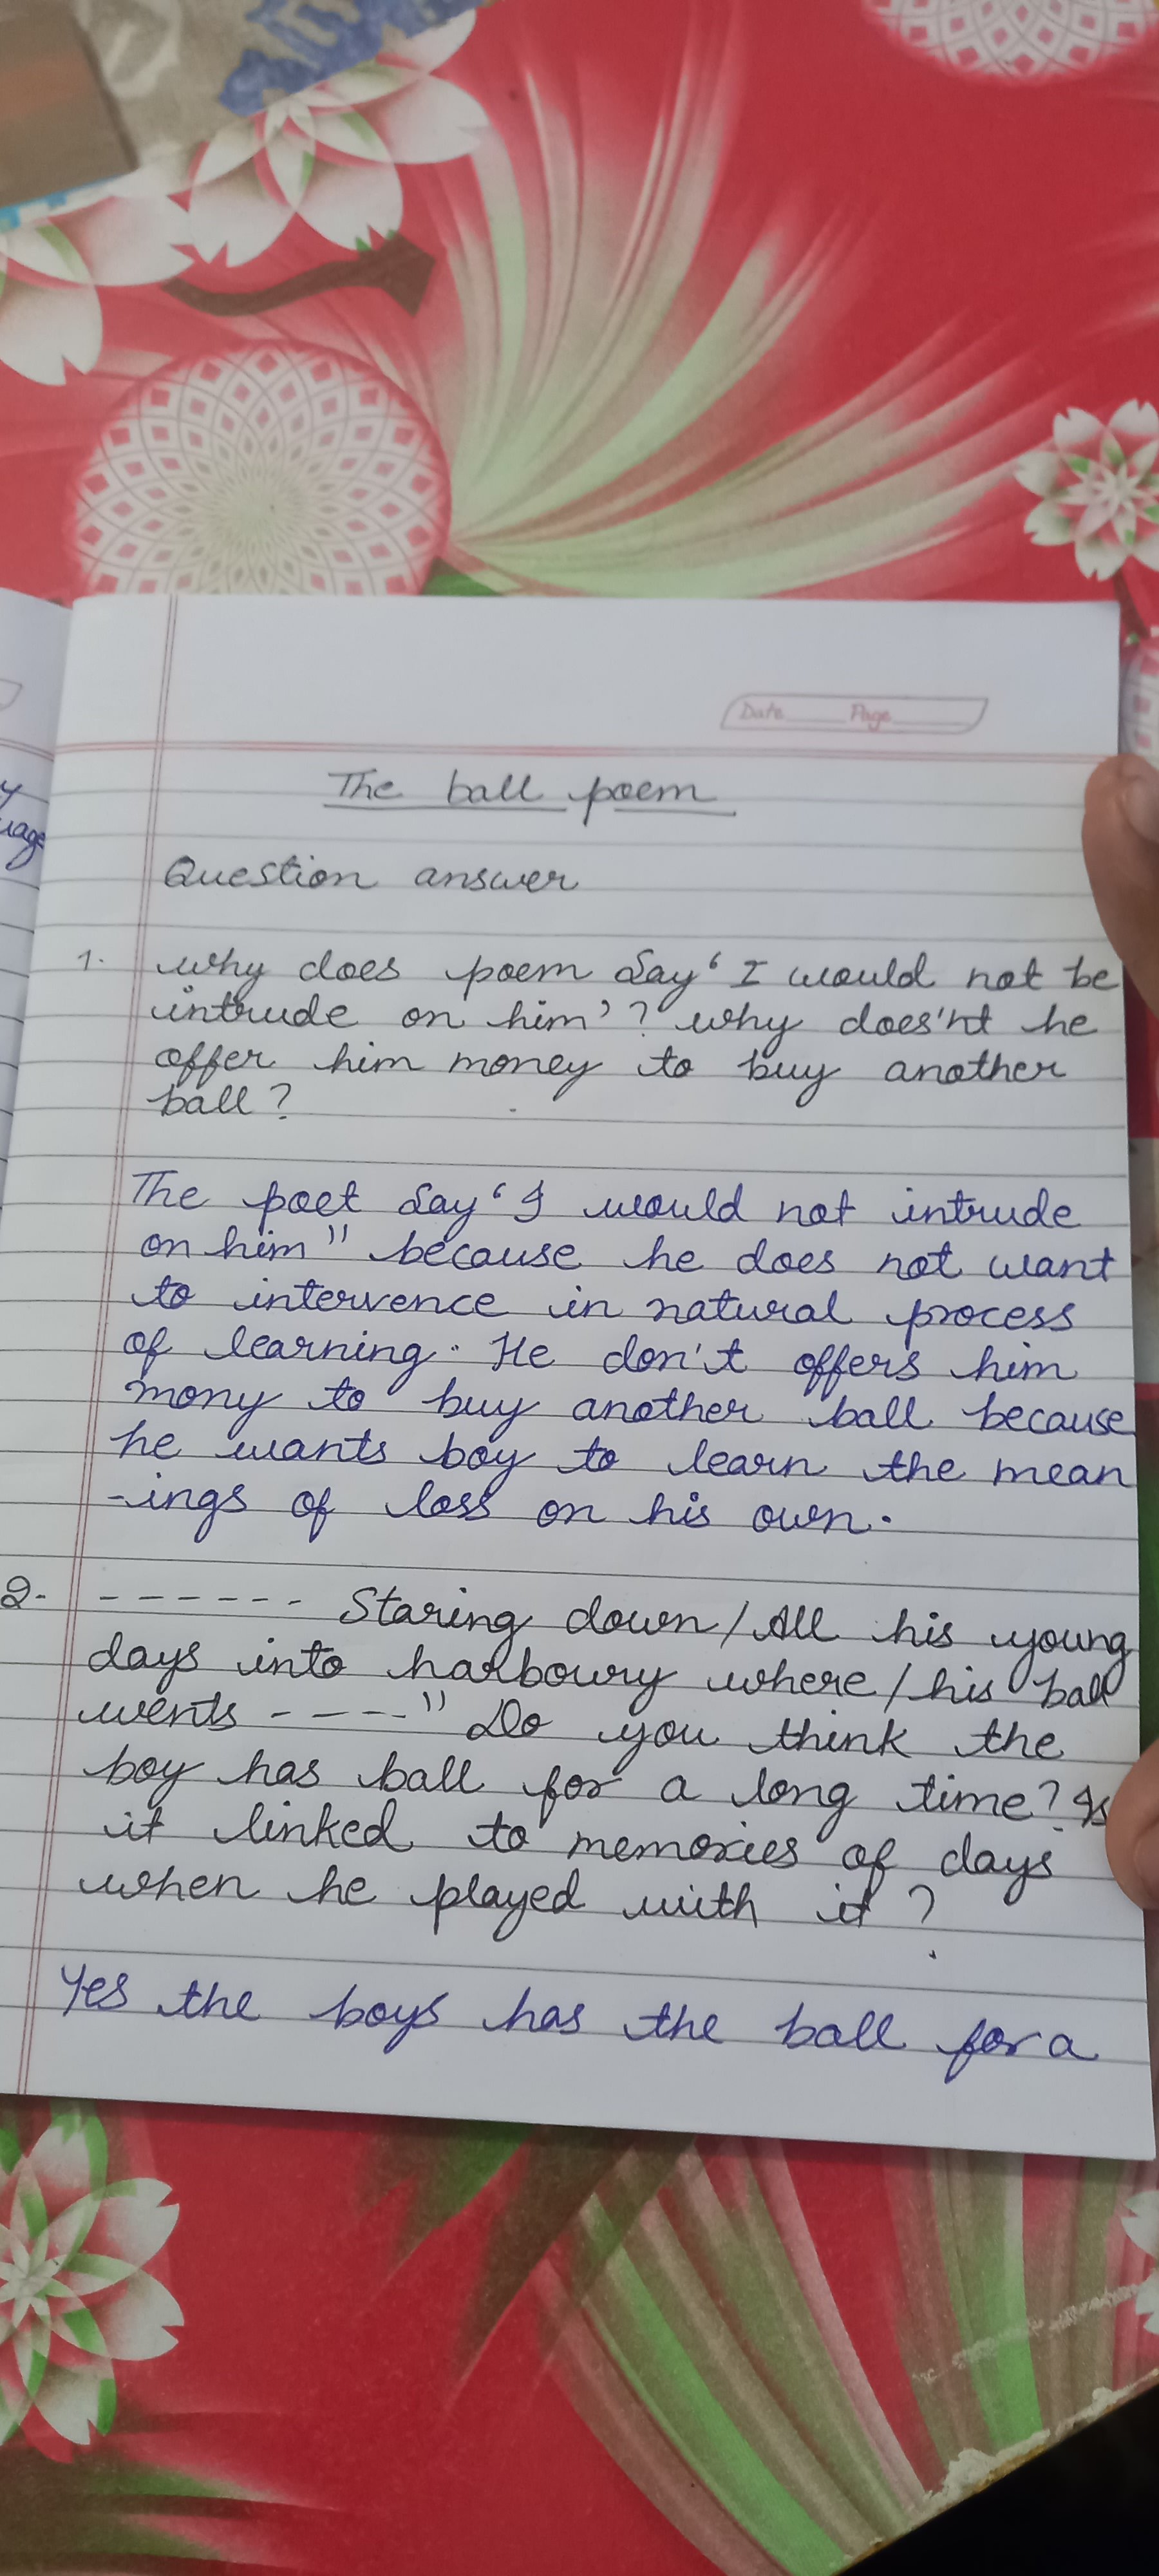 Date Page
The ball poem
Question answer
1. why does poem say ‘ I would not be
intrude on him’? why does'nt he
offer him money to buy another
ball?
The poet say ‘ I would not intrude
on him” because he does not want
to intervence in natural process
of learning. He don't offers him
mony to buy another ball because
he wants boy to learn the mean
-ings of loss on his own.
2- ------ Staring down / All his young
days into harboury where / his ball
wents ----” Do you think the
boy has ball for a long time? Is
it linked to memories of days
when he played with it ?
Yes the boys has the ball for a